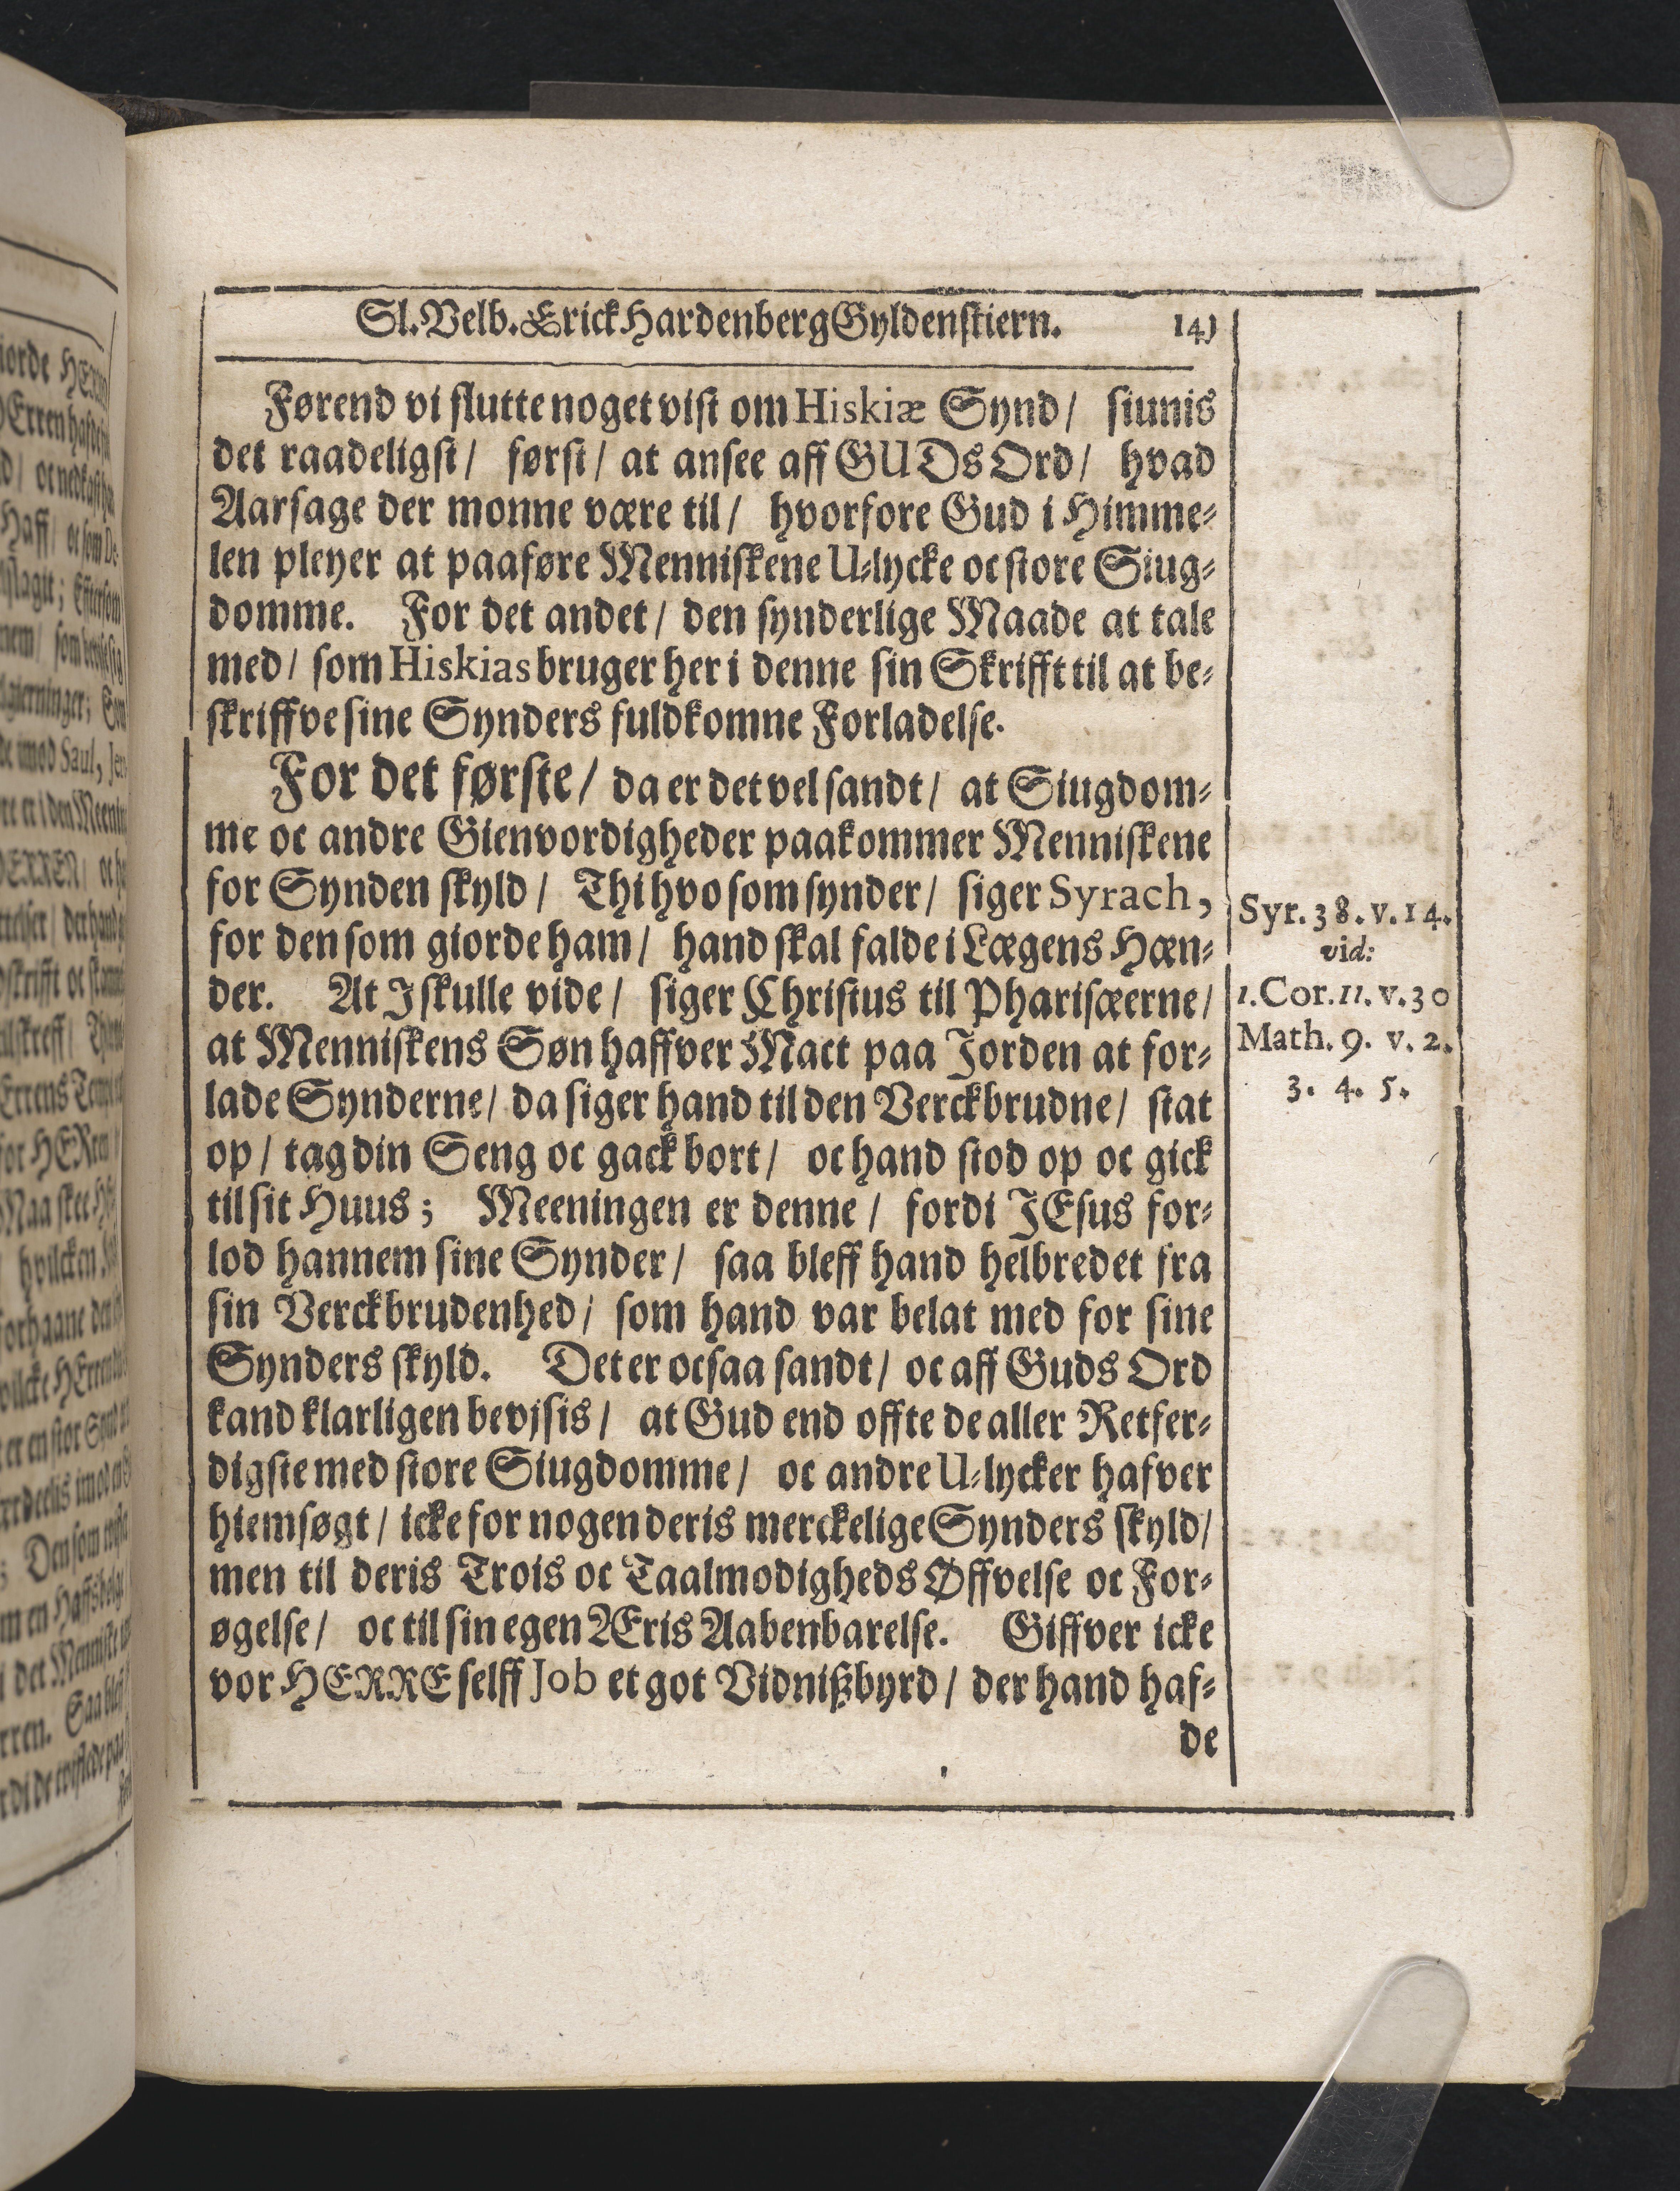 Sl. Velb. Erick Hardenberg Gyldenstiern. 14)
Førend vi slutte noget vist om Hiskiæ Synd / siunis
det raadeligst / først / at ansee aff GUDs Ord / hvad
Aarsage der monne være til / hvorfore Gud i Himme-
len pleyer at paaføre Menniskene U-lycke oc store Siug-
domme. For det andet / den synderlige Maade at tale
med / som Hiskias bruger her i denne sin Skrifft til at be-
skriffve sine Synders fuldkomne Forladelse.
For det første / da er det vel sandt / at Siugdom-
me oc andre Gienvordigheder paakommer Menniskene
for Synden skyld / Thi hvo som synder / siger Syrach,
for den som giorde ham / hand skal falde i Lægens Hæn-
der. At I skulle vide / siger Christus til Pharisæerne /
at Menniskens Søn haffver Mact paa Jorden at for-
lade Synderne / da siger hand til den Verckbrudne / stat
op / tag din Seng oc gack bort / oc hand stod op oc gick
til sit Huus ; Meeningen er denne / fordi JEsus for-
lod hannem sine Synder / saa bleff hand helbredet fra
sin Verckbrudenhed / som hand var belat med for sine
Synders skyld. Det er ocsaa sandt / oc aff Guds Ord
kand klarligen bevjsis / at Gud end offte de aller Retfer-
digste med store Siugdomme / oc andre U-lycker hafver
hiemsøgt / icke for nogen deris merckelige Synders skyld /
men til deris Trois oc Taalmodigheds Øffvelse oc For-
øgelse / oc til sin egen Æris Aabenbarelse. Giffver icke
vor HERRE selff Job et got Vidnißbyrd / der hand haf-
de
Syr. 38. v. 14.
vid:
1. Cor. 11. v. 30
Math. 9. v. 2.
3. 4. 5.